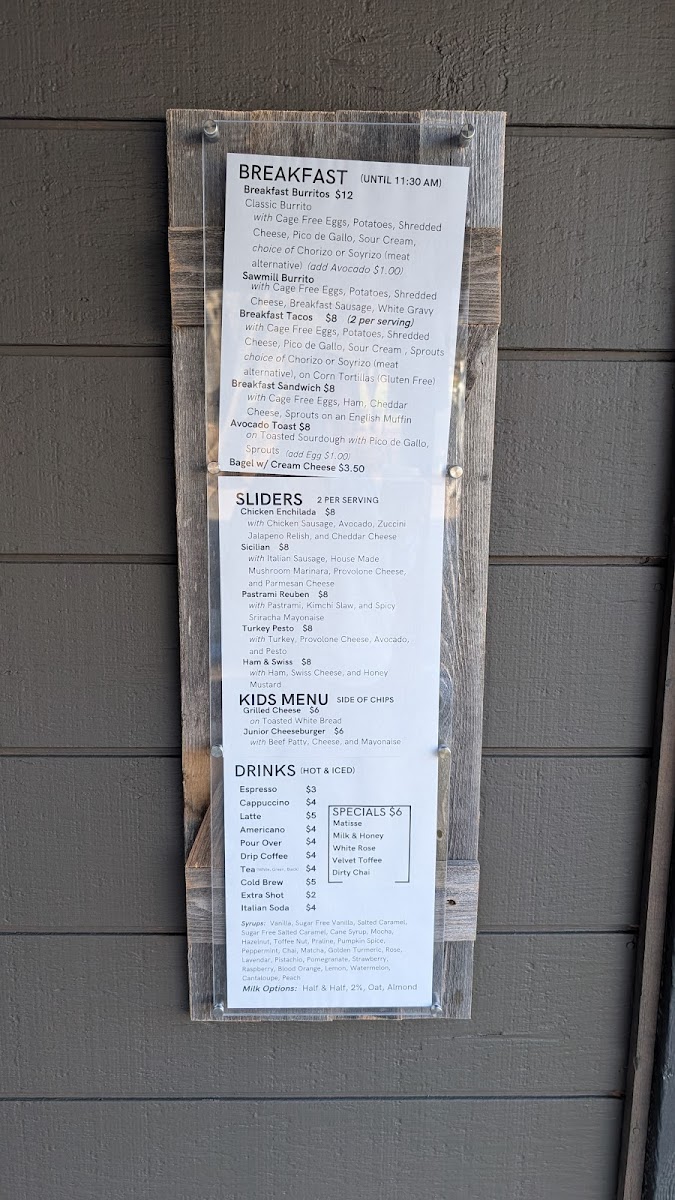 BREAKFAST (UNTIL 11:30 AM)
Breakfast Burritos $12
Classic Burrito
with Cage Free Eggs, Potatoes, Shredded
Cheese, Pico de Gallo, Sour Cream,
choice of Chorizo or Soyrizo (meat
alternative) (add Avocado $1.00)
Sawmill Burrito
with Cage Free Eggs, Potatoes, Shredded
Cheese, Breakfast Sausage, White Gravy
Breakfast Tacos $8 (2 per serving)
with Cage Free Eggs, Potatoes, Shredded
Cheese, Pico de Gallo, Sour Cream , Sprouts
choice of Chorizo or Soyrizo (meat
alternative), on Corn Tortillas (Gluten Free)
Breakfast Sandwich $8
with Cage Free Eggs, Ham, Cheddar
Cheese, Sprouts on an English Muffin
Avocado Toast $8
on Toasted Sourdough with Pico de Gallo,
Sprouts (add Egg $1.00)
Bagel w/ Cream Cheese $3.50
SLIDERS 2 PER SERVING
Chicken Enchilada $8
with Chicken Sausage, Avocado, Zuccini
Jalapeno Relish, and Cheddar Cheese
Sicilian $8
with Italian Sausage, House Made
Mushroom Marinara, Provolone Cheese,
and Parmesan Cheese
Pastrami Reuben $8
with Pastrami, Kimchi Slaw, and Spicy
Sriracha Mayonaise
Turkey Pesto $8
with Turkey, Provolone Cheese, Avocado,
and Pesto
Ham & Swiss $8
with Ham, Swiss Cheese, and Honey
Mustard
KIDS MENU SIDE OF CHIPS
Grilled Cheese $6
on Toasted White Bread
Junior Cheeseburger $6
with Beef Patty, Cheese, and Mayonaise
DRINKS (HOT & ICED)
Espresso $3
Cappuccino $4
Latte $5
Americano $4
Pour Over $4
Drip Coffee $4
Tea $4
Cold Brew $5
Extra Shot $2
Italian Soda $4
SPECIALS $6
Matisse
Milk & Honey
White Rose
Velvet Toffee
Dirty Chai
Syrups: Vanilla, Sugar Free Vanilla, Salted Caramel,
Sugar Free Salted Caramel, Cane Syrup, Mocha,
Hazelnut, Toffee Nut, Praline, Pumpkin Spice,
Peppermint, Chai, Matcha, Golden Turmeric, Rose,
Lavendar, Pistachio, Pomegranate, Strawberry,
Raspberry, Blood Orange, Lemon, Watermelon,
Cantaloupe, Peach
Milk Options: Half & Half, 2%, Oat, Almond